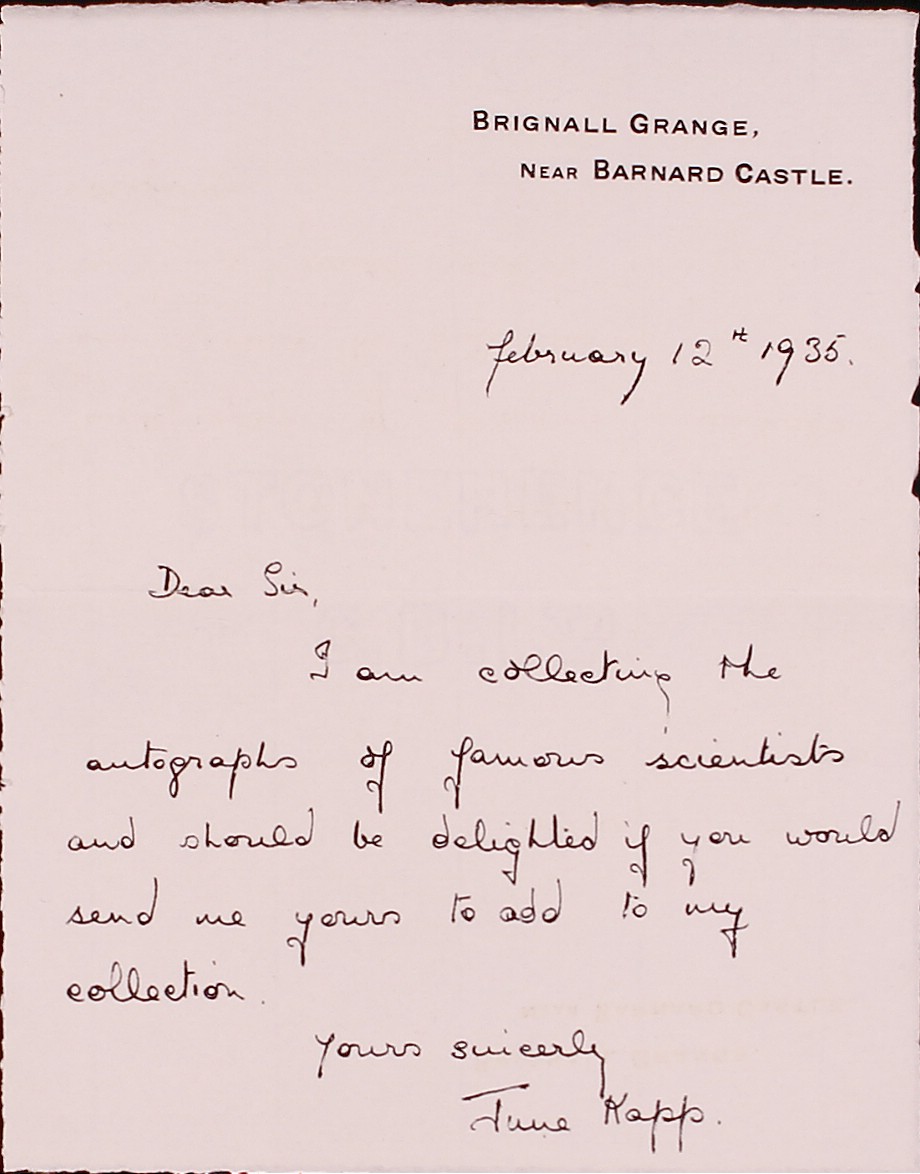 BRIGNALL GRANGE,
NEAR BARNARD CASTLE.
February 12th 1935.
Dear Sir,
I am collecting the
autographs of famous scientists
and should be delighted if you would
send me yours to add to my
collection.
Yours sincerly
June Kapp.